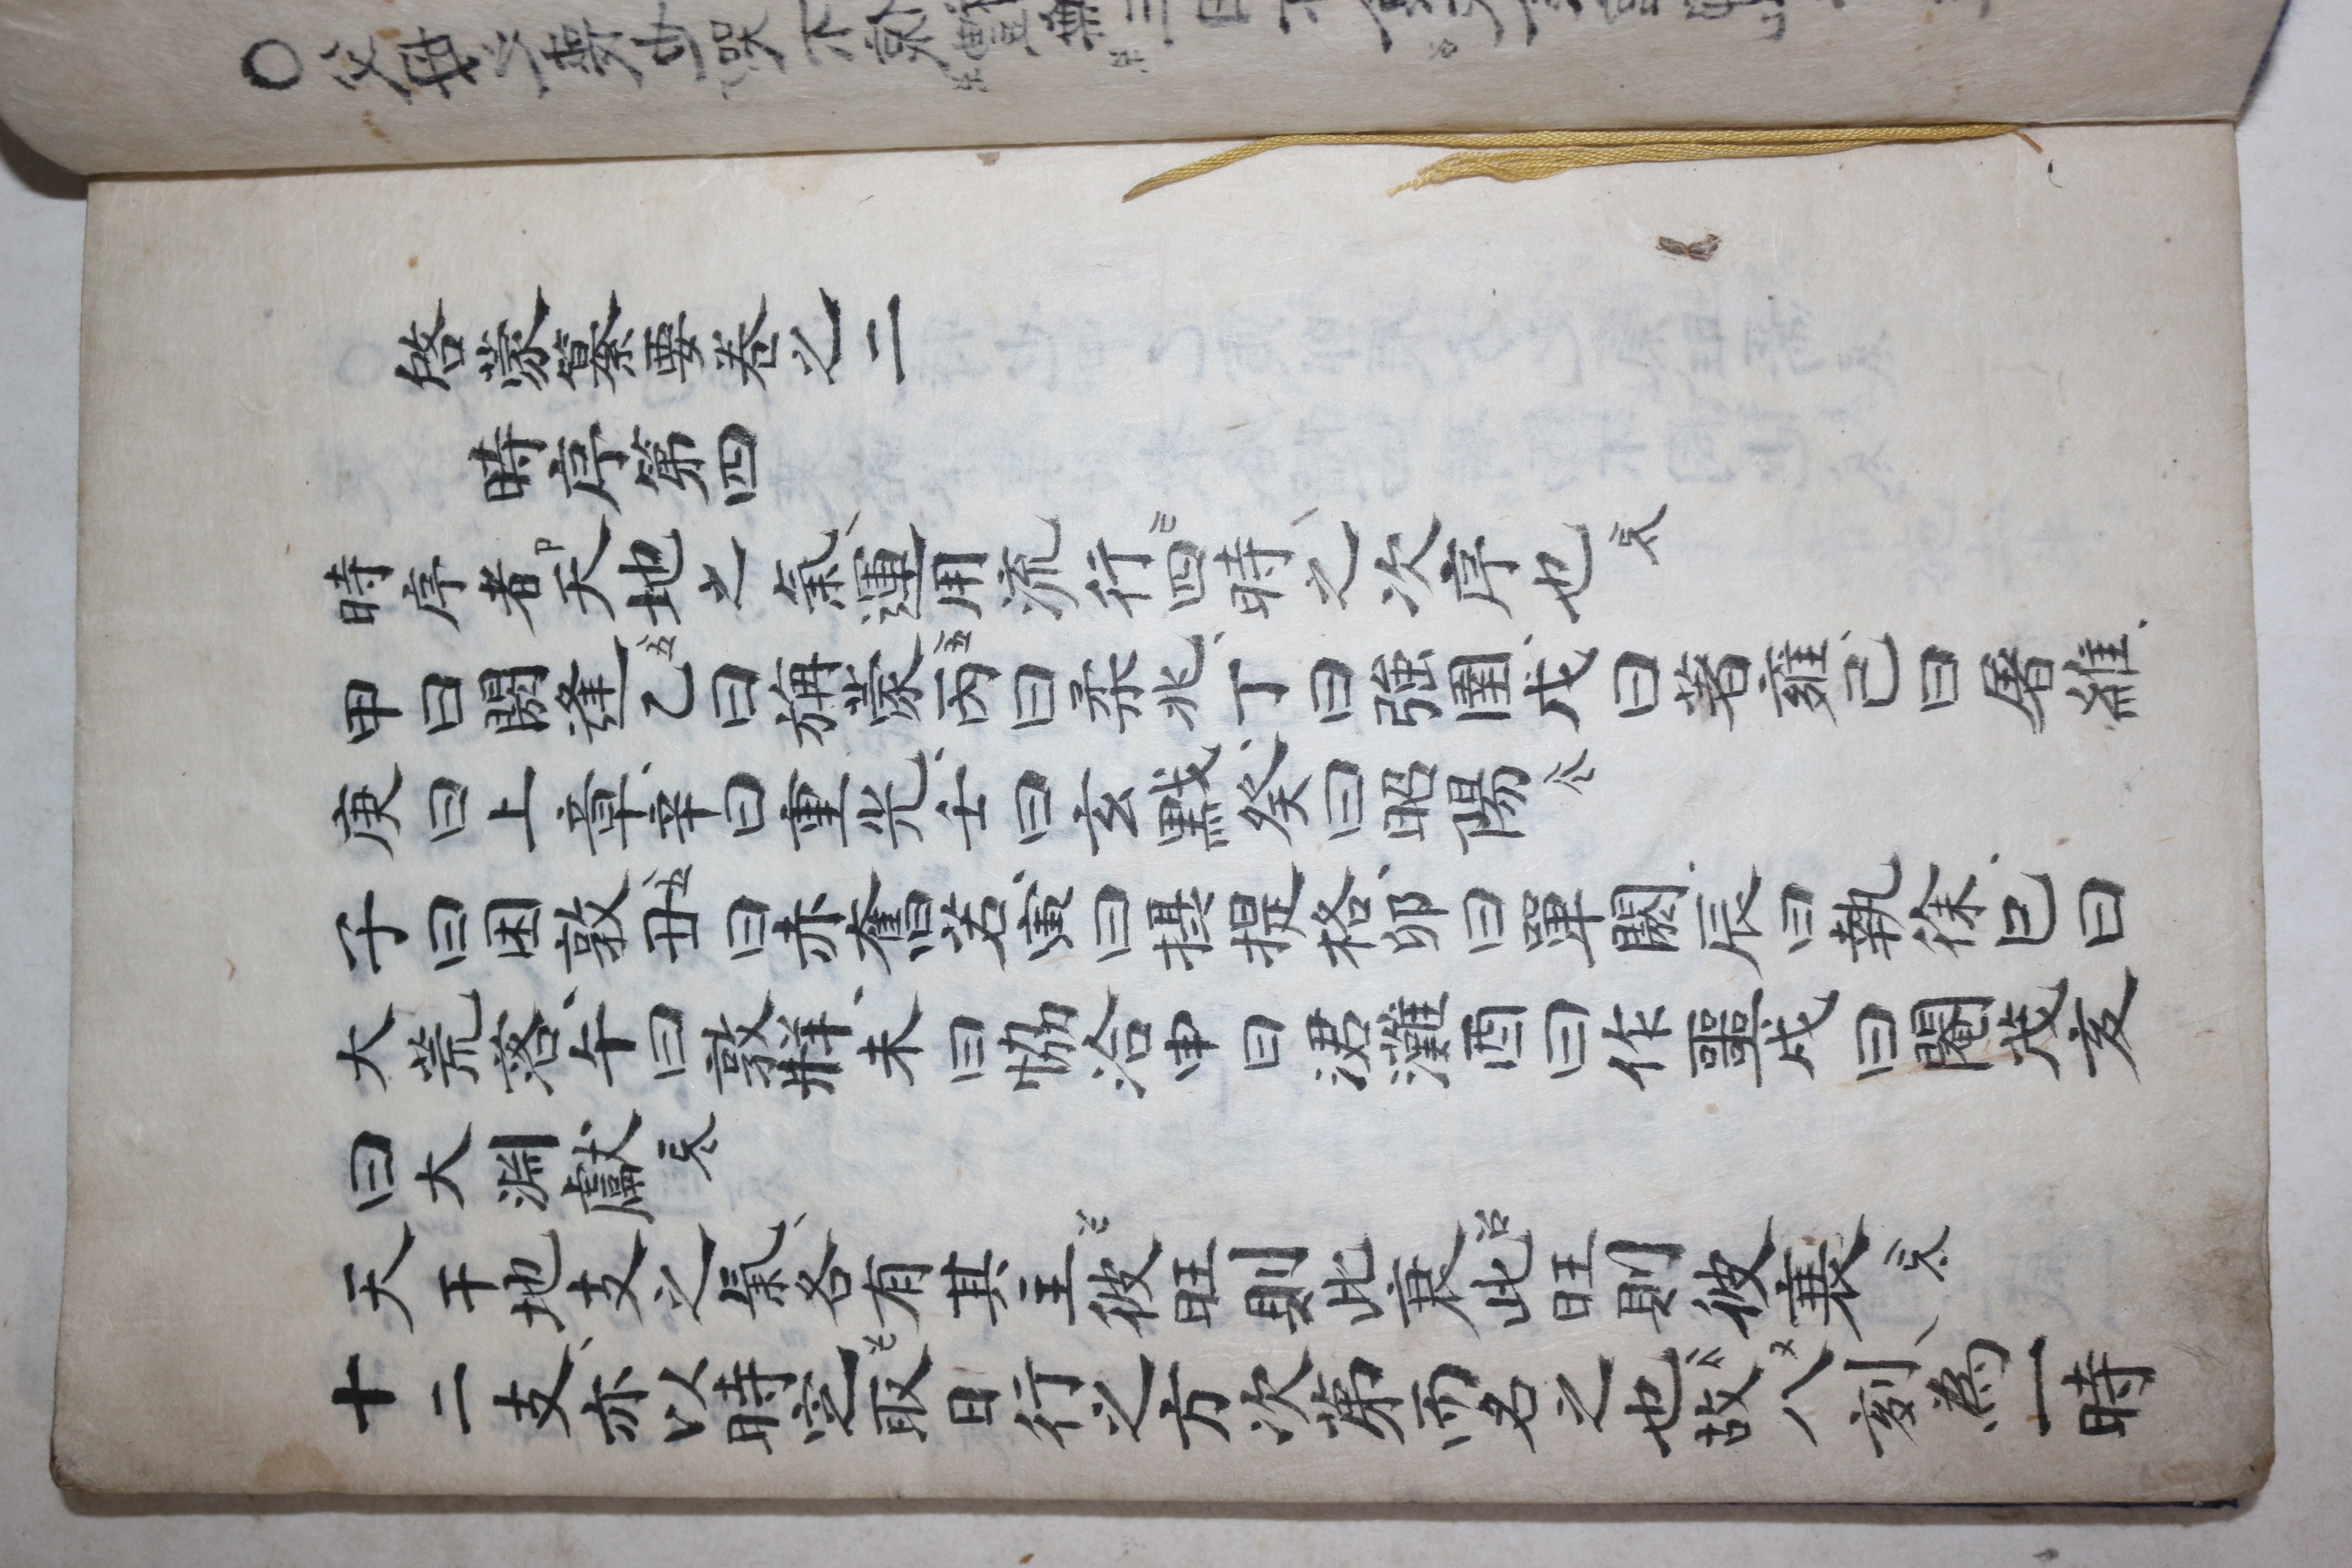 ○父母之喪
啓蒙纂要卷之二
時序第四
時序者天地之氣運用流行四時之次序也
甲曰閼逢乙曰旃蒙丙曰柔兆丁曰強圉戊曰著雍己曰屠維
庚曰上章辛曰重光壬曰玄黓癸曰昭陽
子曰困敦丑曰赤奮若寅曰攝提格卯曰單閼辰曰執徐巳曰
大荒落午曰敦牂未曰協洽申曰涒灘酉曰作噩戌曰閹茂亥
曰大淵獻
天干地支之氣各有其主彼旺則此衰此旺則彼衰
十二支亦以時定取日行之方次第而名之也故八刻爲一時